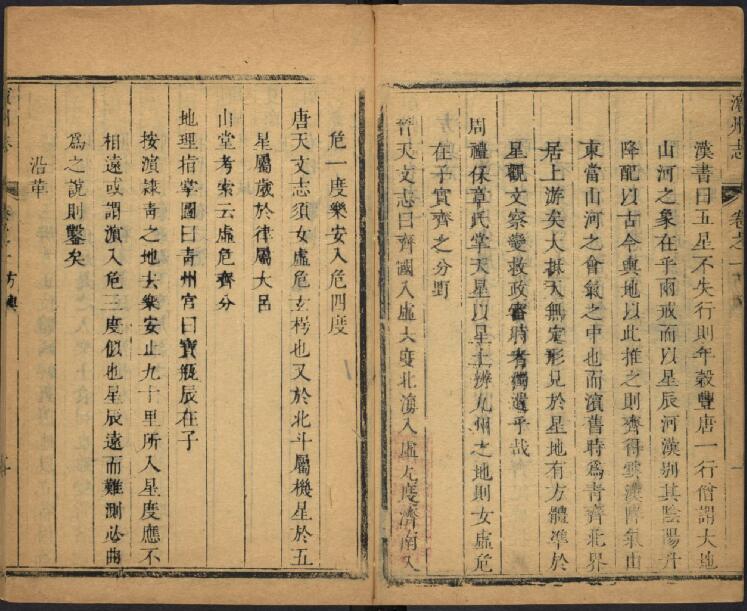 濱州志 卷之一
漢書曰五星不失行則年穀豐唐一行僧謂大地
山河之象在乎兩戒而以星辰河漢別其陰陽升
降配以古今輿地以此推之則齊得雲漢降氣山
東當山河之會氣之中也而濱舊時爲青齊北界
居上游矣大抵天無定形見於星地有方體準於
星觀文察變救政審時者獨遺乎哉
周禮保章氏掌天星以星土辨九州之地則女虛危
在子實齊之分野
晉天文志曰齊國入虛六度北海入虛九度濟南入
危一度樂安入危四度
唐天文志須女虛危玄枵也又於北斗屬機星於五
星屬歲於律屬大呂
山堂考索云虛危齊分
地理指掌圖曰青州宮曰寶瓶辰在子
按濱隸青之地去樂安止九十里所入星度應不
相遠或謂濱入危三度似也星辰遠而難測必曲
爲之說則鑿矣
沿革